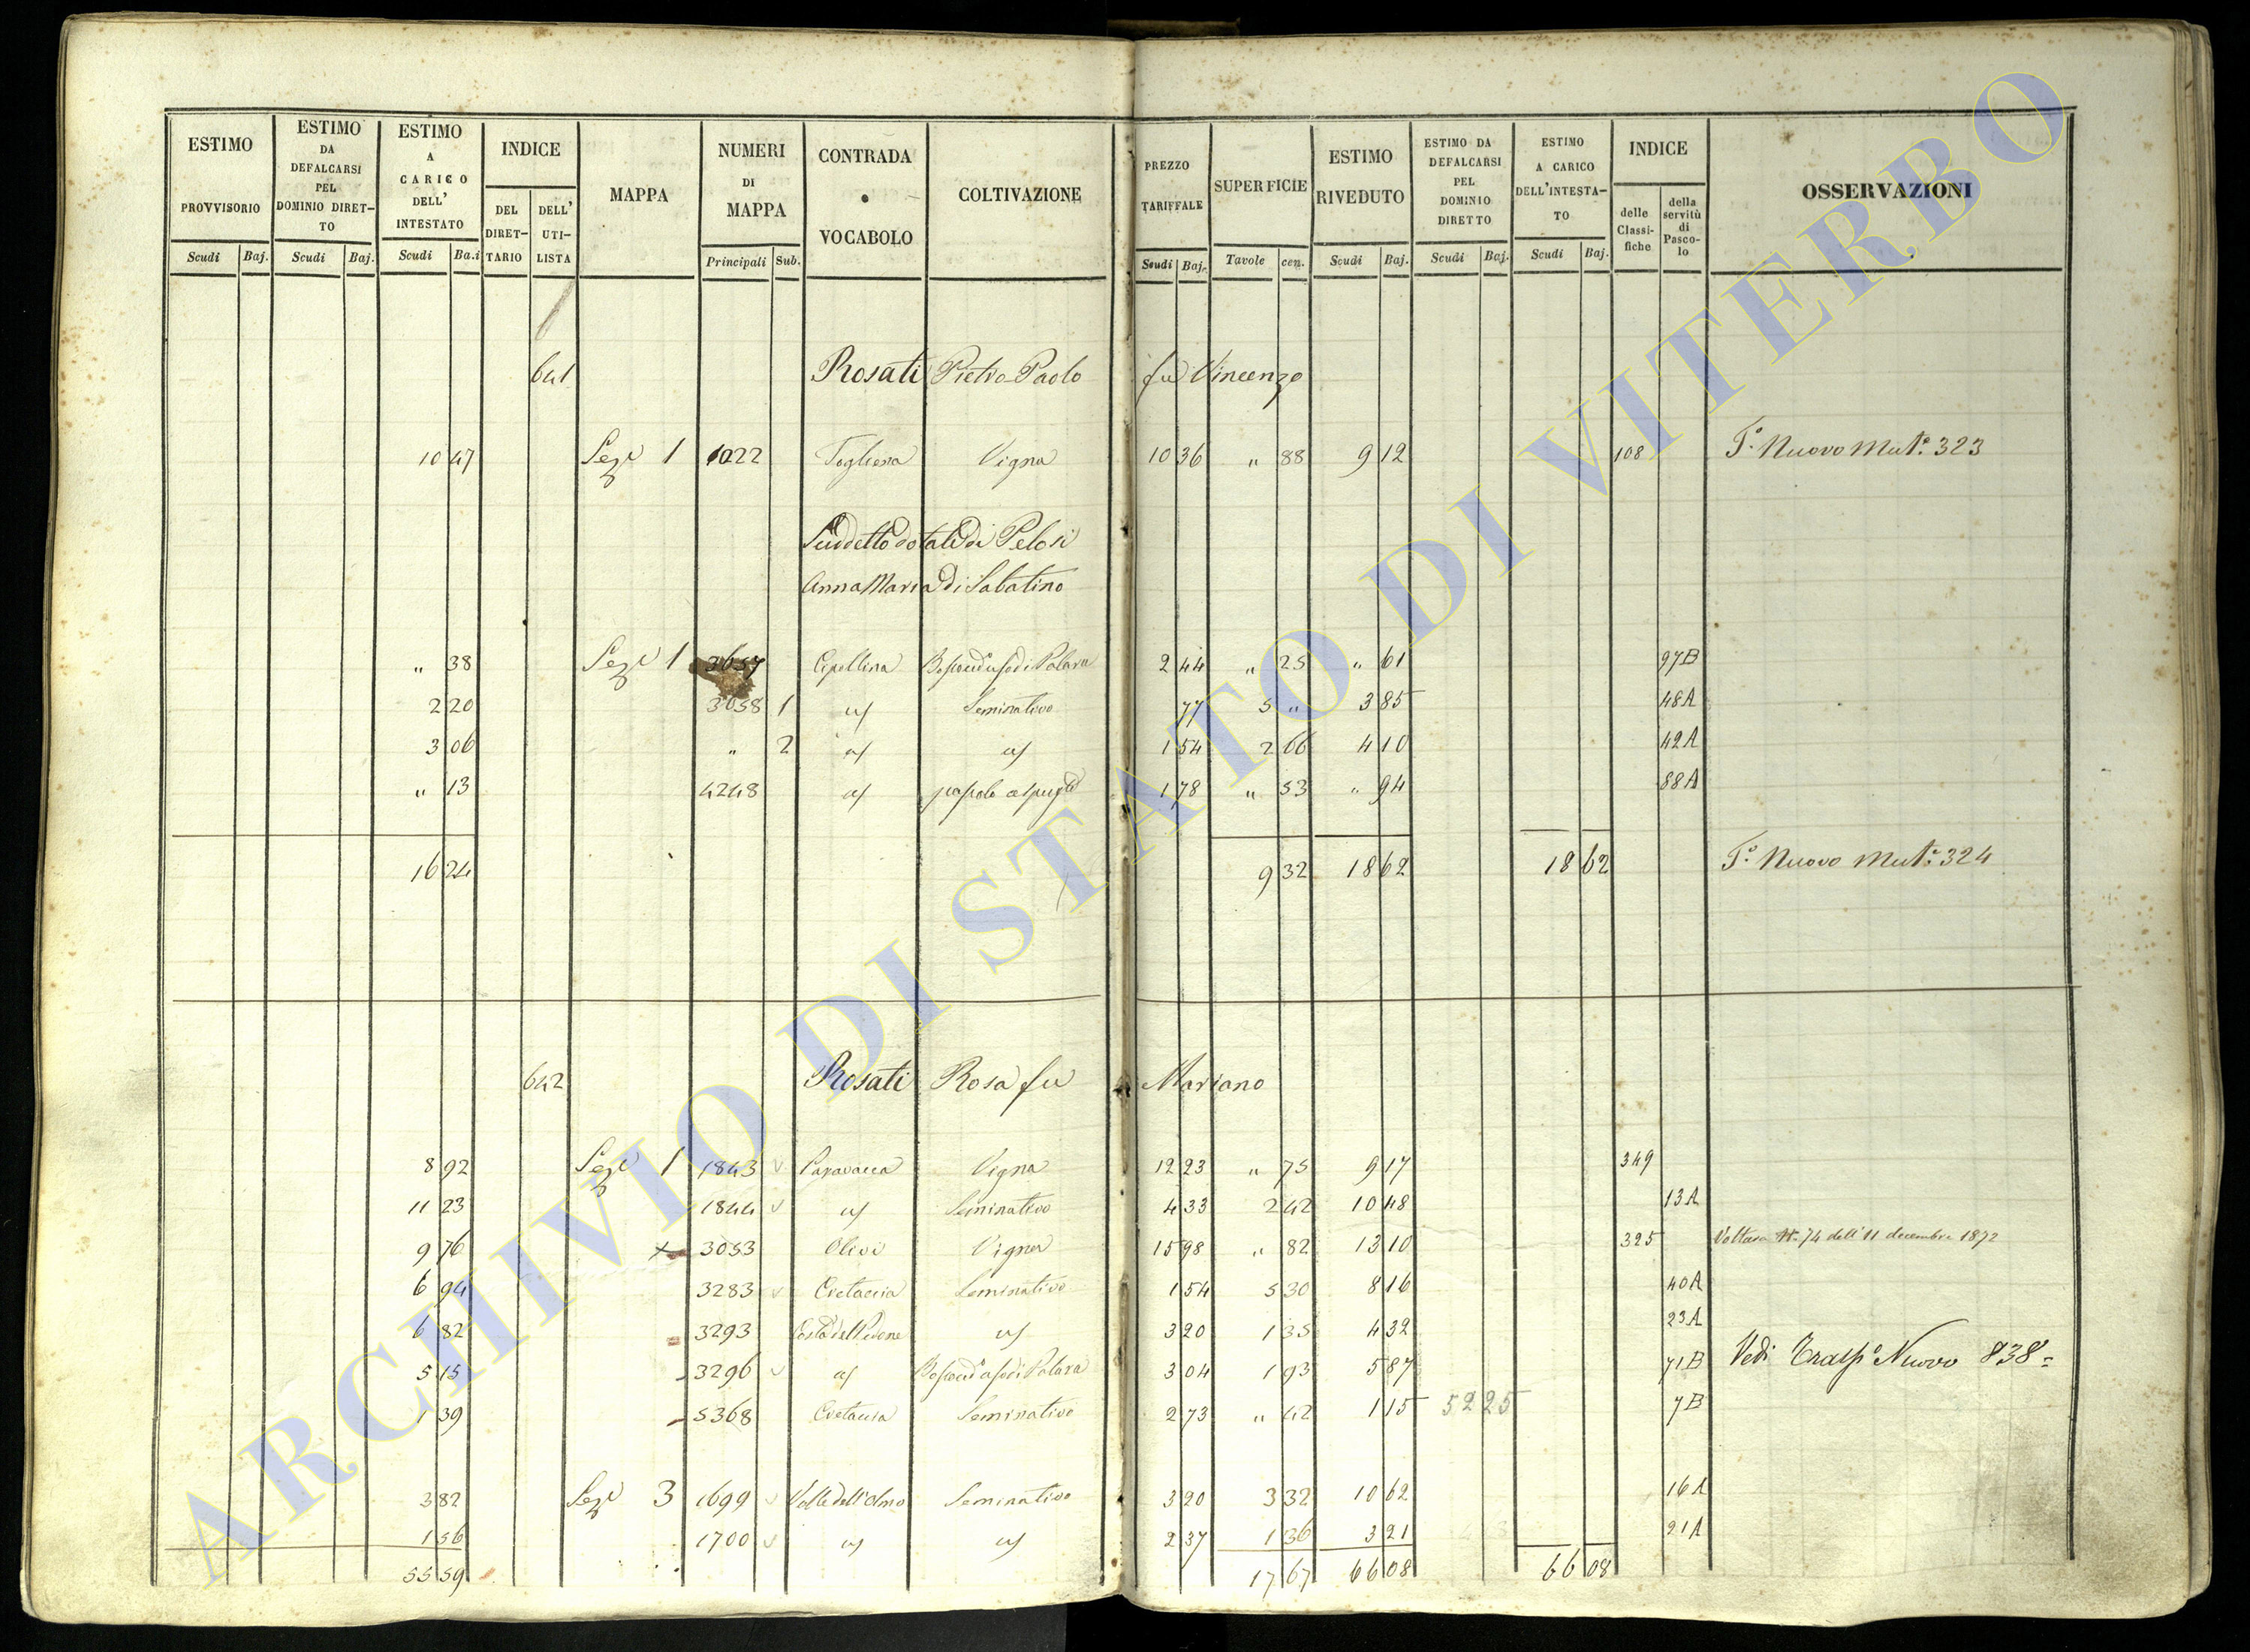 ESTIMO PROVVISORIO | ESTIMO DA DEFALCARSI PEL DOMINIO DIRETTO | ESTIMO A CARICO DELL' INTESTATO | INDICE DEL DIRETTARIO | DELL' UTILISTA | MAPPA | NUMERI DI MAPPA | CONTRADA o VOCABOLO | COLTIVAZIONE | PREZZO TARIFFALE | SUPERFICIE | ESTIMO RIVEDUTO | ESTIMO DA DEFALCARSI PEL DOMINIO DIRETTO | ESTIMO A CARICO DELL'INTESTATO | INDICE delle Classifiche | della servitù di Pascolo | OSSERVAZIONI
Scudi Baj. Scudi Baj. Scudi Ba.i Principali Sub. Scudi Baj. Tavole cen. Scudi Baj. Scudi Baj. Scudi Baj.
641 Rosati Pietro Paolo fu Vincenzo
10 47 Sez.e 1 1022 Togliena Vigna 10 36 " 88 9 12 108 T.o Nuovo Mut.e 323
Suddetto dotale di Pelosi
Anna Maria di Sabatino
" 38 Sez.e 1 3657 Cipollina 2 44 " 25 " 61 97B
2 20 3658 1 Seminativo 77 5 " 3 85 48A
3 06 " 2 1 54 2 66 4 10 42A
" 13 4248 1 78 " 53 " 94 88A
16 24 9 32 18 62 18 62 T.o Nuovo Mut.e 324
642 Rosati Rosa fu Mariano
8 92 Sez.e 1 1843 Vigna 12 23 " 75 9 17 349
11 23 1844 Seminativo 4 33 2 42 10 48 13A
9 76 3053 Olivi Vigna 15 98 " 82 13 10 325 Voltura N. 74 dell' 11 decembre 1872
6 94 3283 Cretaccia Seminativo 1 54 5 30 8 16 40A
6 82 3293 3 20 1 35 4 32 23A
5 15 3296 3 04 1 93 5 87 71B Vedi Trasp.o Nuovo 838
1 39 5368 Cretaccia Seminativo 2 73 " 42 1 15 52 25 7B
3 82 Sez.e 3 1699 Valle dell'Olmo Seminativo 3 20 3 32 10 62 16A
1 56 1700 2 37 1 36 3 21 21A
55 59 17 67 66 08 66 08
ARCHIVIO DI STATO DI VITERBO